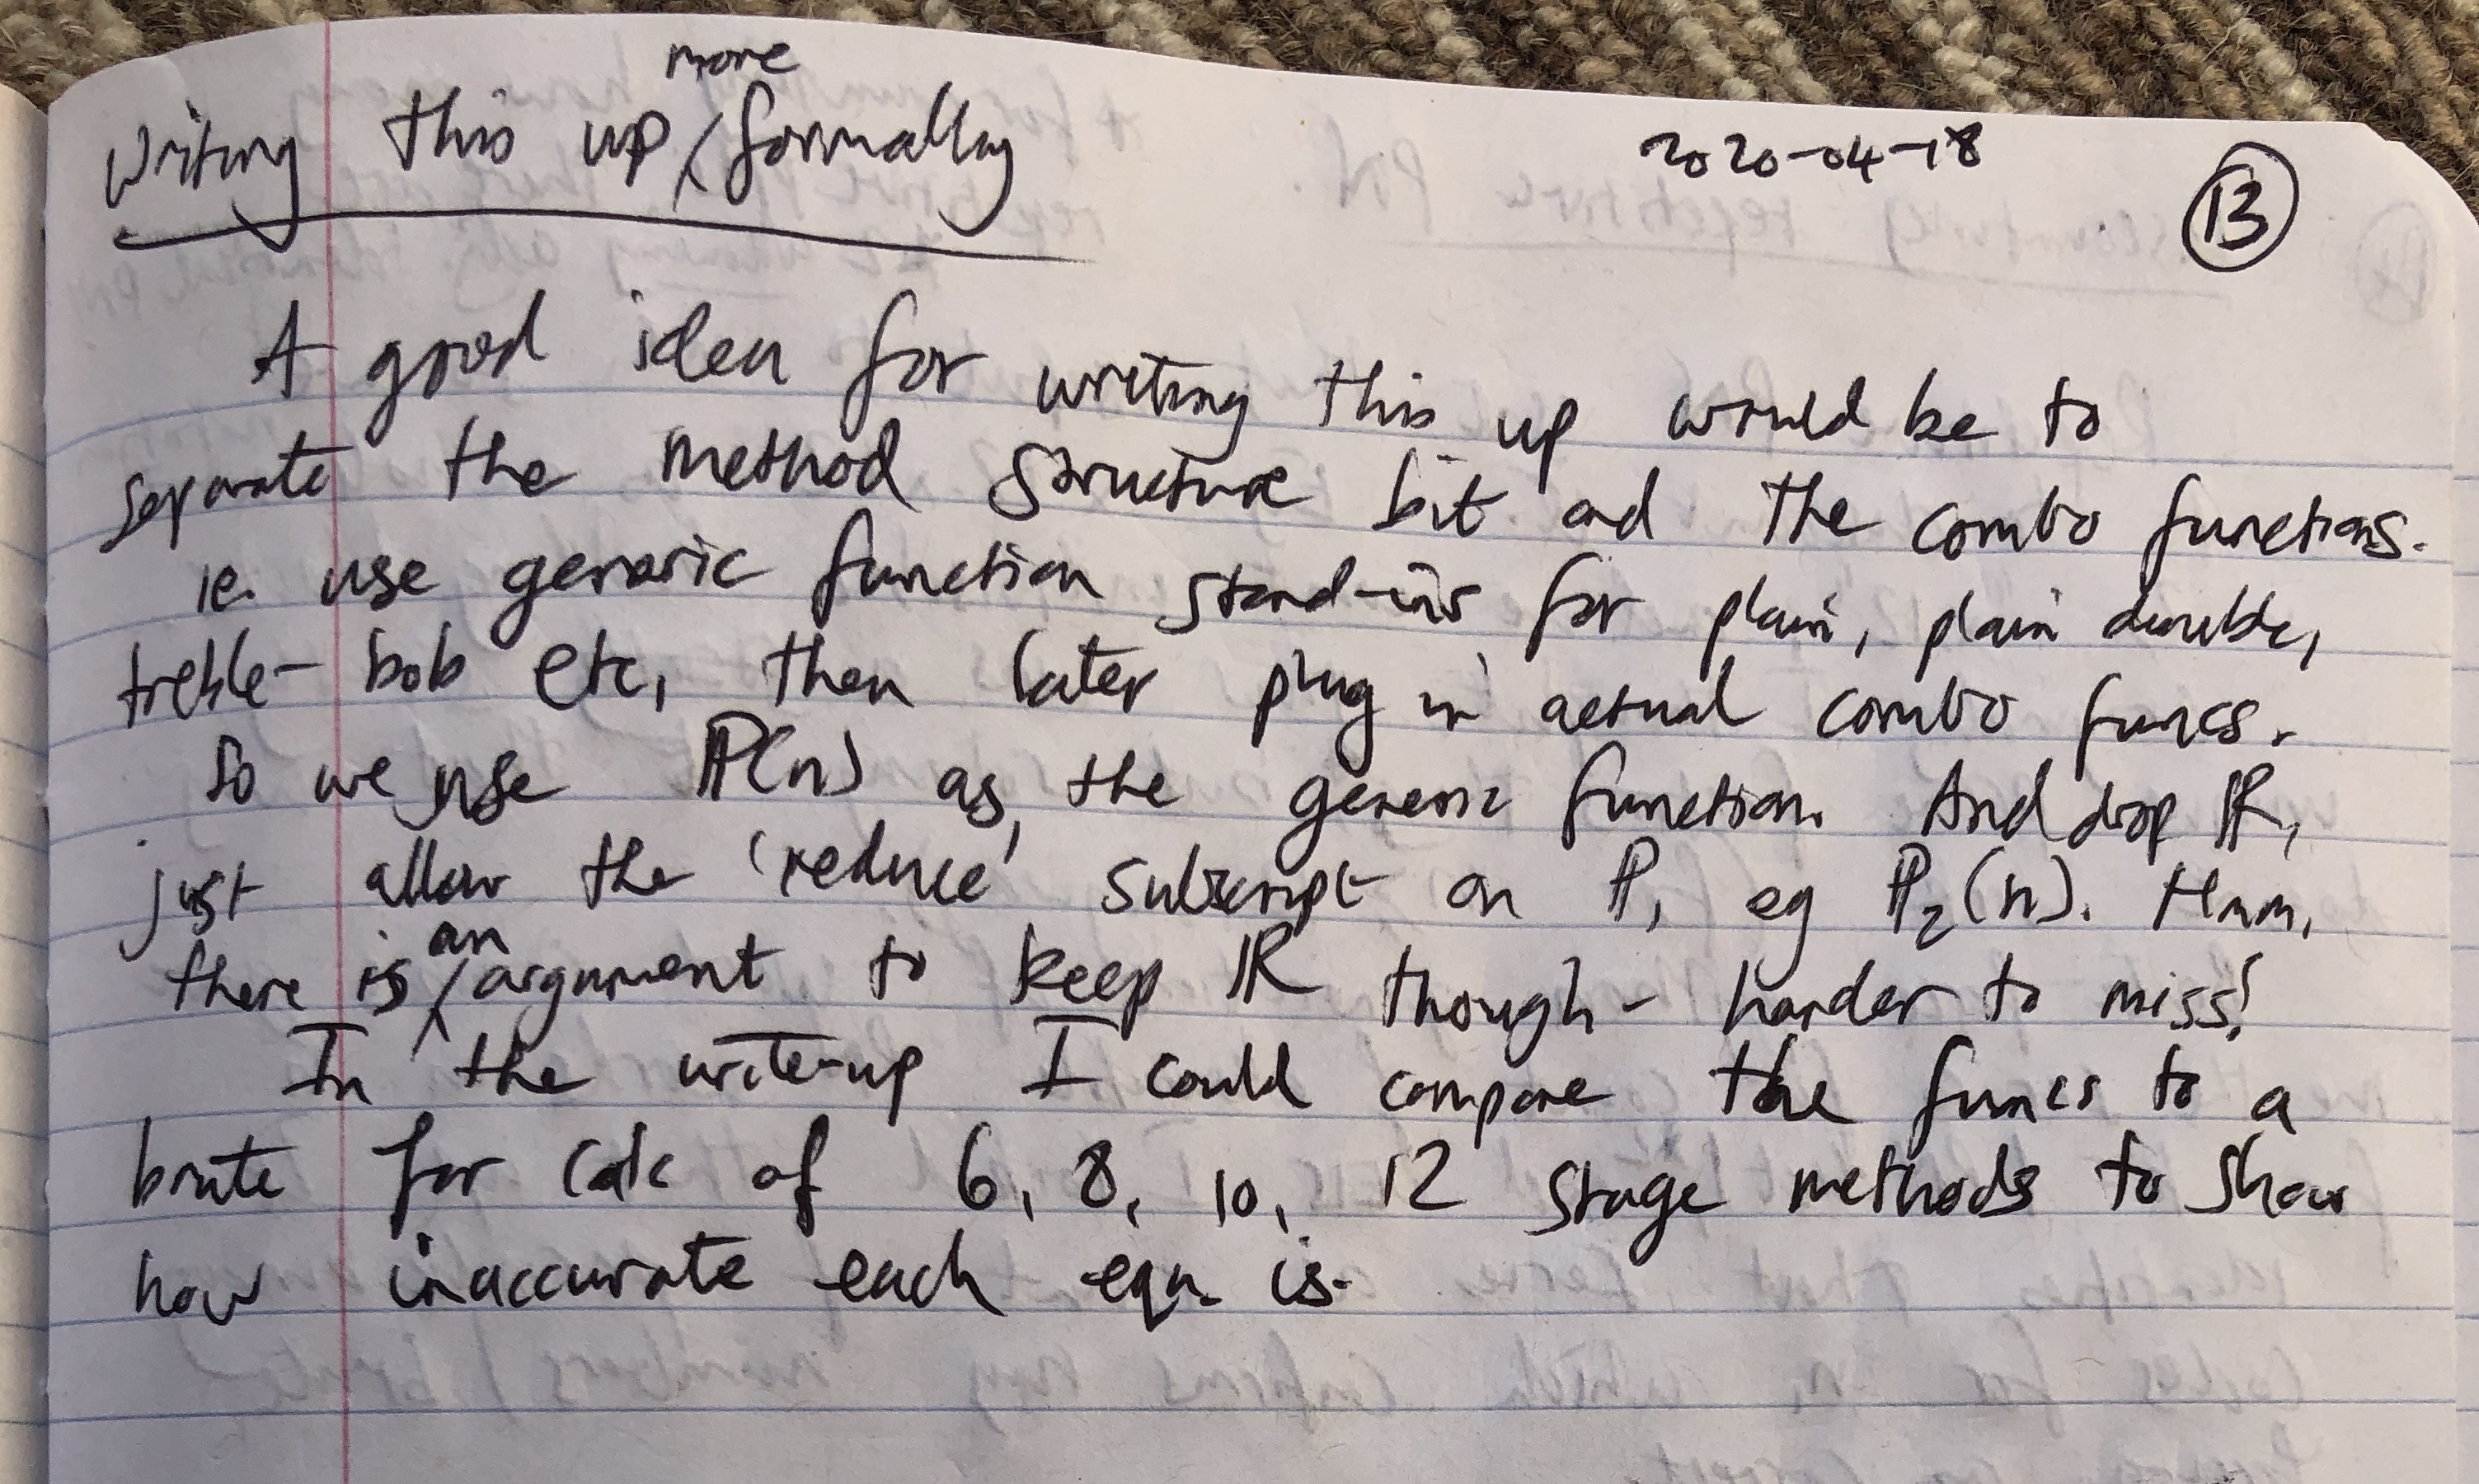 Writing this up more formally
2020-04-18
13
A good idea for writing this up would be to
separate the method structure bit and the combo functions.
ie. use generic function stand-ins for plain, plain double,
treble-bob etc, then later plug in actual combo funcs.
So we use ℙ(n) as the generic function. And drop ℝ,
just allow the 'reduce' subscript on ℙ, eg ℙ₂(n). Hmm,
there is an argument to keep ℝ though - harder to miss!
In the write-up I could compare the funcs to a
brute for calc of 6, 8, 10, 12 stage methods to show
how inaccurate each equ. is.